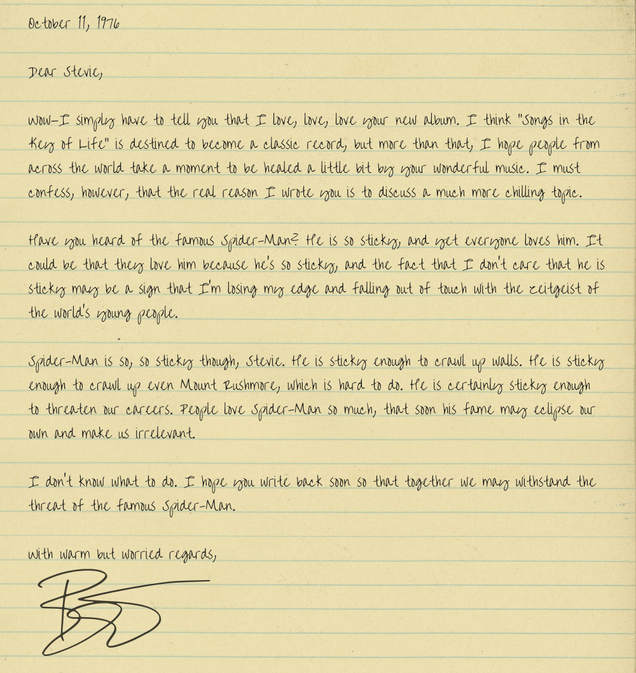 October 11, 1976
Dear Stevie,
Wow–I simply have to tell you that I love, love, love your new album. I think "Songs in the
Key of Life" is destined to become a classic record, but more than that, I hope people from
across the world take a moment to be healed a little bit by your wonderful music. I must
confess, however, that the real reason I wrote you is to discuss a much more chilling topic.
Have you heard of the famous Spider-Man? He is so sticky, and yet everyone loves him. It
could be that they love him because he's so sticky, and the fact that I don't care that he is
sticky may be a sign that I'm losing my edge and falling out of touch with the zeitgeist of
the world's young people.
Spider-Man is so, so sticky though, Stevie. He is sticky enough to crawl up walls. He is sticky
enough to crawl up even Mount Rushmore, which is hard to do. He is certainly sticky enough
to threaten our careers. People love Spider-Man so much, that soon his fame may eclipse our
own and make us irrelevant.
I don't know what to do. I hope you write back soon so that together we may withstand the
threat of the famous Spider-Man.
With warm but worried regards,